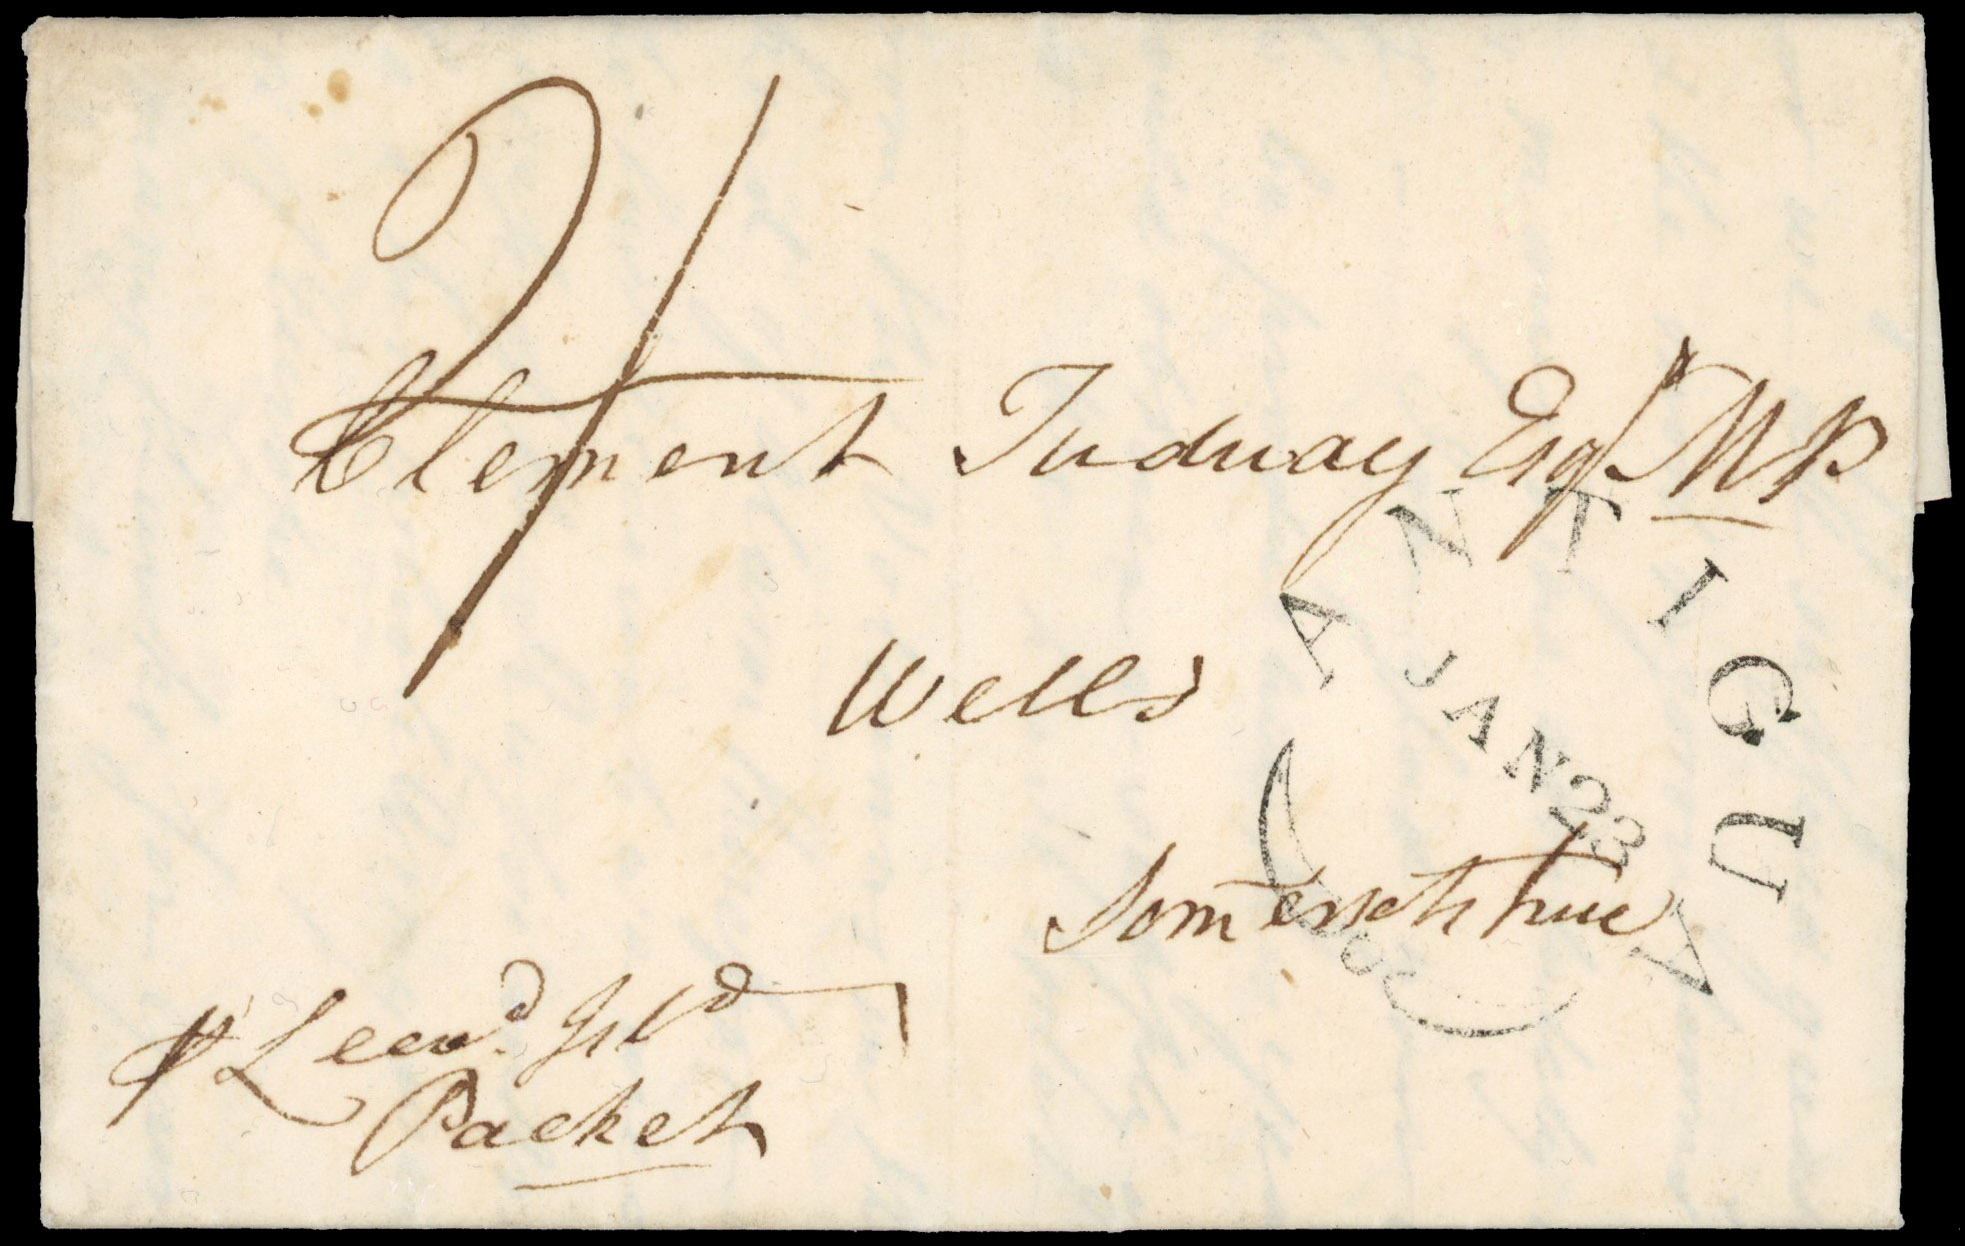 2/
Clement Tudway Esqr MP
Wells
Somersetshire
ANTIGUA
JAN 23
pr Leewd Islds
Packet